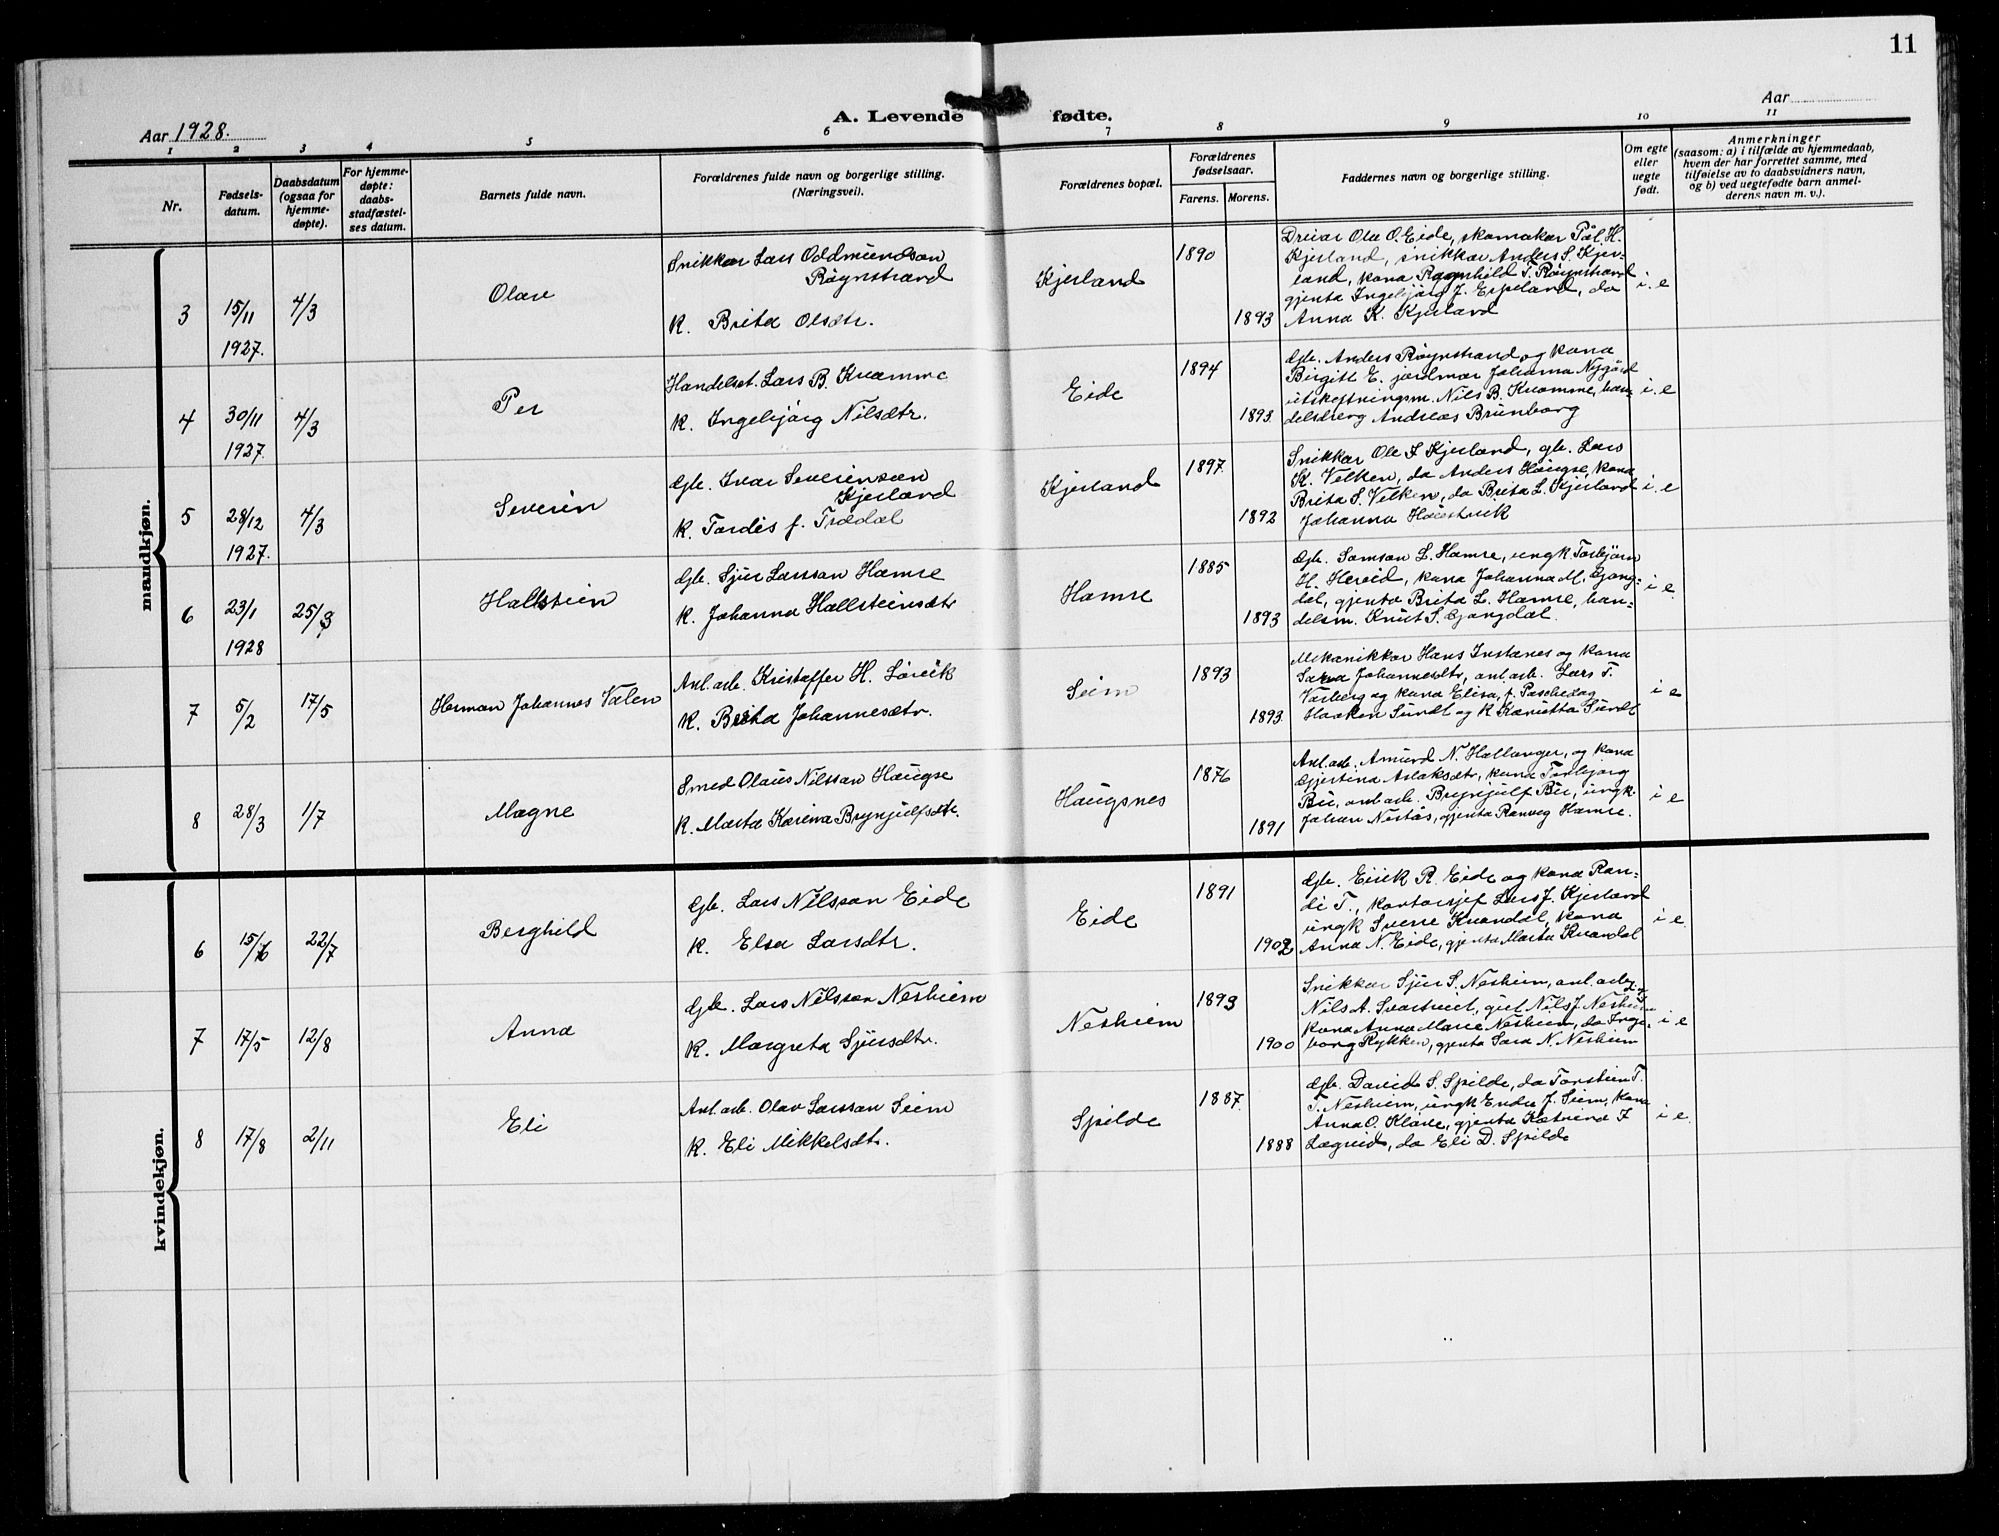 11
Aar 1928.
A. Levende fødte.
Aar
1 2 3 4 5 6 7 8 9 10 11
Nr.
Fødsels-
datum.
Daabsdatum
(ogsaa for
hjemme-
døpte).
For hjemme-
døpte:
daabs-
stadfæstel-
ses datum.
Barnets fulde navn.
Forældrenes fulde navn og borgerlige stilling.
(Næringsvei).
Forældrenes bopæl.
Forældrenes
fødselsaar.
Farens. Morens.
Faddernes navn og borgerlige stilling.
Om egte
eller
uegte
født.
Anmerkninger
(saasom: a) i tilfælde av hjemmedaab,
hvem der har forrettet samme, med
tilføielse av to daabsvidners navn,
og b) ved uegtefødte barn anmel-
derens navn m. v.).
mandkjøn.
3 15/11 1927. 4/3
Olav
Snikkar Lars Oddmundson
Røynstrand
K. Brita Olsdtr.
Kjerland
1890
1893
Dreiar Ola O. Eide, skomakar Pål H.
Kjerland, snikkar Anders S. Kjer-
land, kona Ragnhild T. Røynstrand
gjenta Ingebjørg J. Espeland, do
Anna K. Kjerland
i. e
4 30/11 1927. 4/3
Per
Handelsst. Lars B. Kvamme
K. Ingebjørg Nilsdtr.
Eide
1894
1893.
Gb. Anders Røynstrand og kona
Birgitt E. jordmor Johanna Nygård
utskiftningsm. Nils B. Kvamme, han-
delsberg Andreas Brunborg
i. e
5 28/12 1927. 4/3
Severin
Gb. Ivar Severinson
Kjerland
K. Tordis f. Trædal
Kjerland
1897.
1892
Snikkar Ole S Kjerland, gb. Lars
K. Velken, do Anders Haugse, kona
Brita S. Velken, do Brita L. Kjerland
Johanna
i e
6 23/1 1928 25/3
Hallstein
Gb. Sjur Larsson Hamre
K. Johanna Hallsteinsdtr
Hamre
1885
1893
Gb. Samson L. Hamre, ungk Torbjørn
H. Hereid, kona Johanna M. Gjang-
dal, gjenta Brita L. Hamre, han-
delsm. Knut S. Gjangdal.
i e
7 5/2 17/5
Herman Johannes Valen
Anl. arb. Kristoffer H. Lövik
K. Brita Johannesdtr.
Seim
1893
1893.
Mekanikkar Hans Instanes og kona
Sara Johannesdtr, anl. arb. Lars T.
Varberg og kona Elisa, f. Paschedag
Haaken Sundt og K Sundt
i e
8 28/3 1/7
Magne
Smed Olaus Nilsson Haugse
K. Marta Karina Brynjulfsdtr.
Haugsnes
1876
1891
Anl. arb. Amund N. Hallanger, og kona
Gjertina Aslaksdtr, kona Torbjørg
Bu, anl. arb. Brynjulf Bu, ungk.
Johan Nestås, gjenta Ranveg Hamre.
i e
kvindekjøn.
6 15/6 22/7
Berghild
Gb. Lars Nilsson Eide
K. Elsa Larsdtr.
Eide
1891
1902
Gb. Eirik R. Eide og kona Ran-
di T., kontorsjef Lars J. Kjerland
ungk Sverre Kvandal, kona
Anna N. Eide, gjenta Marta Kvandal
i e
7 17/5 12/8
Anna
Gb. Lars Nilsson Nesheim
K. Margreta Sjursdtr.
Nesheim
1893
1900
Snikkar Sjur S. Nesheim, anl. arb.
Nils A. Svartveit, gut Nils J. Nesheim
kona Anna Marie Nesheim, do Inge-
borg Rykken, gjenta Sara N. Nesheim
i e
8 17/8 2/11
Eli
Anl. arb. Olav Larsson Seim
K. Eli Mikkelsdtr.
Spilde
1887.
1888
Gb. David S. Spilde, do Torstein T.
T. Nesheim, ungk Endre J. Seim, kona
Anna O. Kløve, gjenta Katrina I
Lægreid, do Eli D. Spilde
i e.